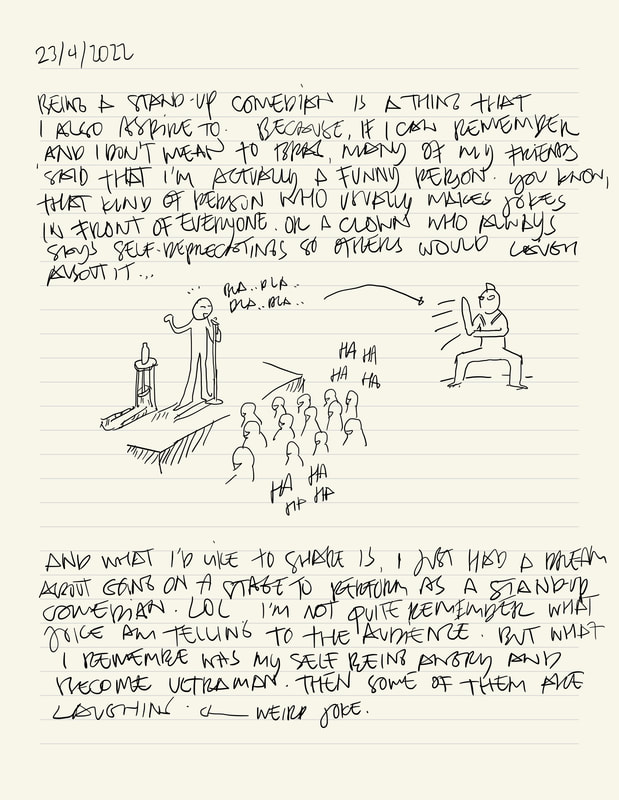 23/4/2022
BEING A STAND-UP COMEDIAN IS A THING THAT
I ALSO ASPIRE TO. BECAUSE, IF I CAN REMEMBER
AND I DON'T MEAN TO BRAG, MANY OF MY FRIENDS
SAID THAT I'M ACTUALLY A FUNNY PERSON. YOU KNOW,
THAT KIND OF PERSON WHO USUALLY MAKES JOKES
IN FRONT OF EVERYONE. OR A CLOWN WHO ALWAYS
SAYS SELF-DEPRECATINGS SO OTHERS WOULD LAUGH
ABOUT IT...
BLA.. BLA..
BLA.. BLA..
HA HA
HA HA
HA HA
HA HA
AND WHAT I'D LIKE TO SHARE IS, I JUST HAD A DREAM
ABOUT GOING ON A STAGE TO PERFORM AS A STANDUP
COMEDIAN. LOL I'M NOT QUITE REMEMBER WHAT
JOKE AM TELLING TO THE AUDIENCE. BUT WHAT
I REMEMBER WAS MY SELF BEING ANGRY AND
BECOME ULTRAMAN. THEN SOME OF THEM ARE
LAUGHING. WEIRD JOKE.